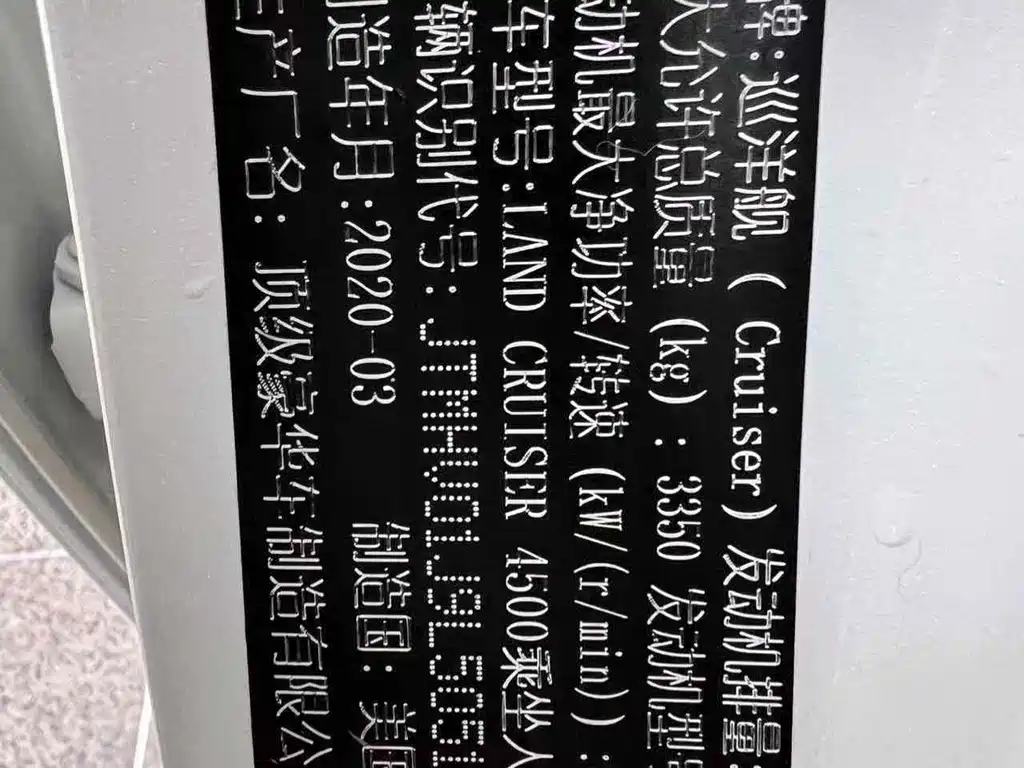 牌:巡洋舰 (Cruiser) 发动机排量
大允许总质量 (kg) :3350 发动机型号
动机最大净功率/转速 (kW/(r/min)) :
车型号:LAND CRUISER 4500乘坐人
辆识别代号:JTMHV01J9L5051
制造年月:2020-03 制造国:美国
生产厂名: 顶级豪华车制造有限公